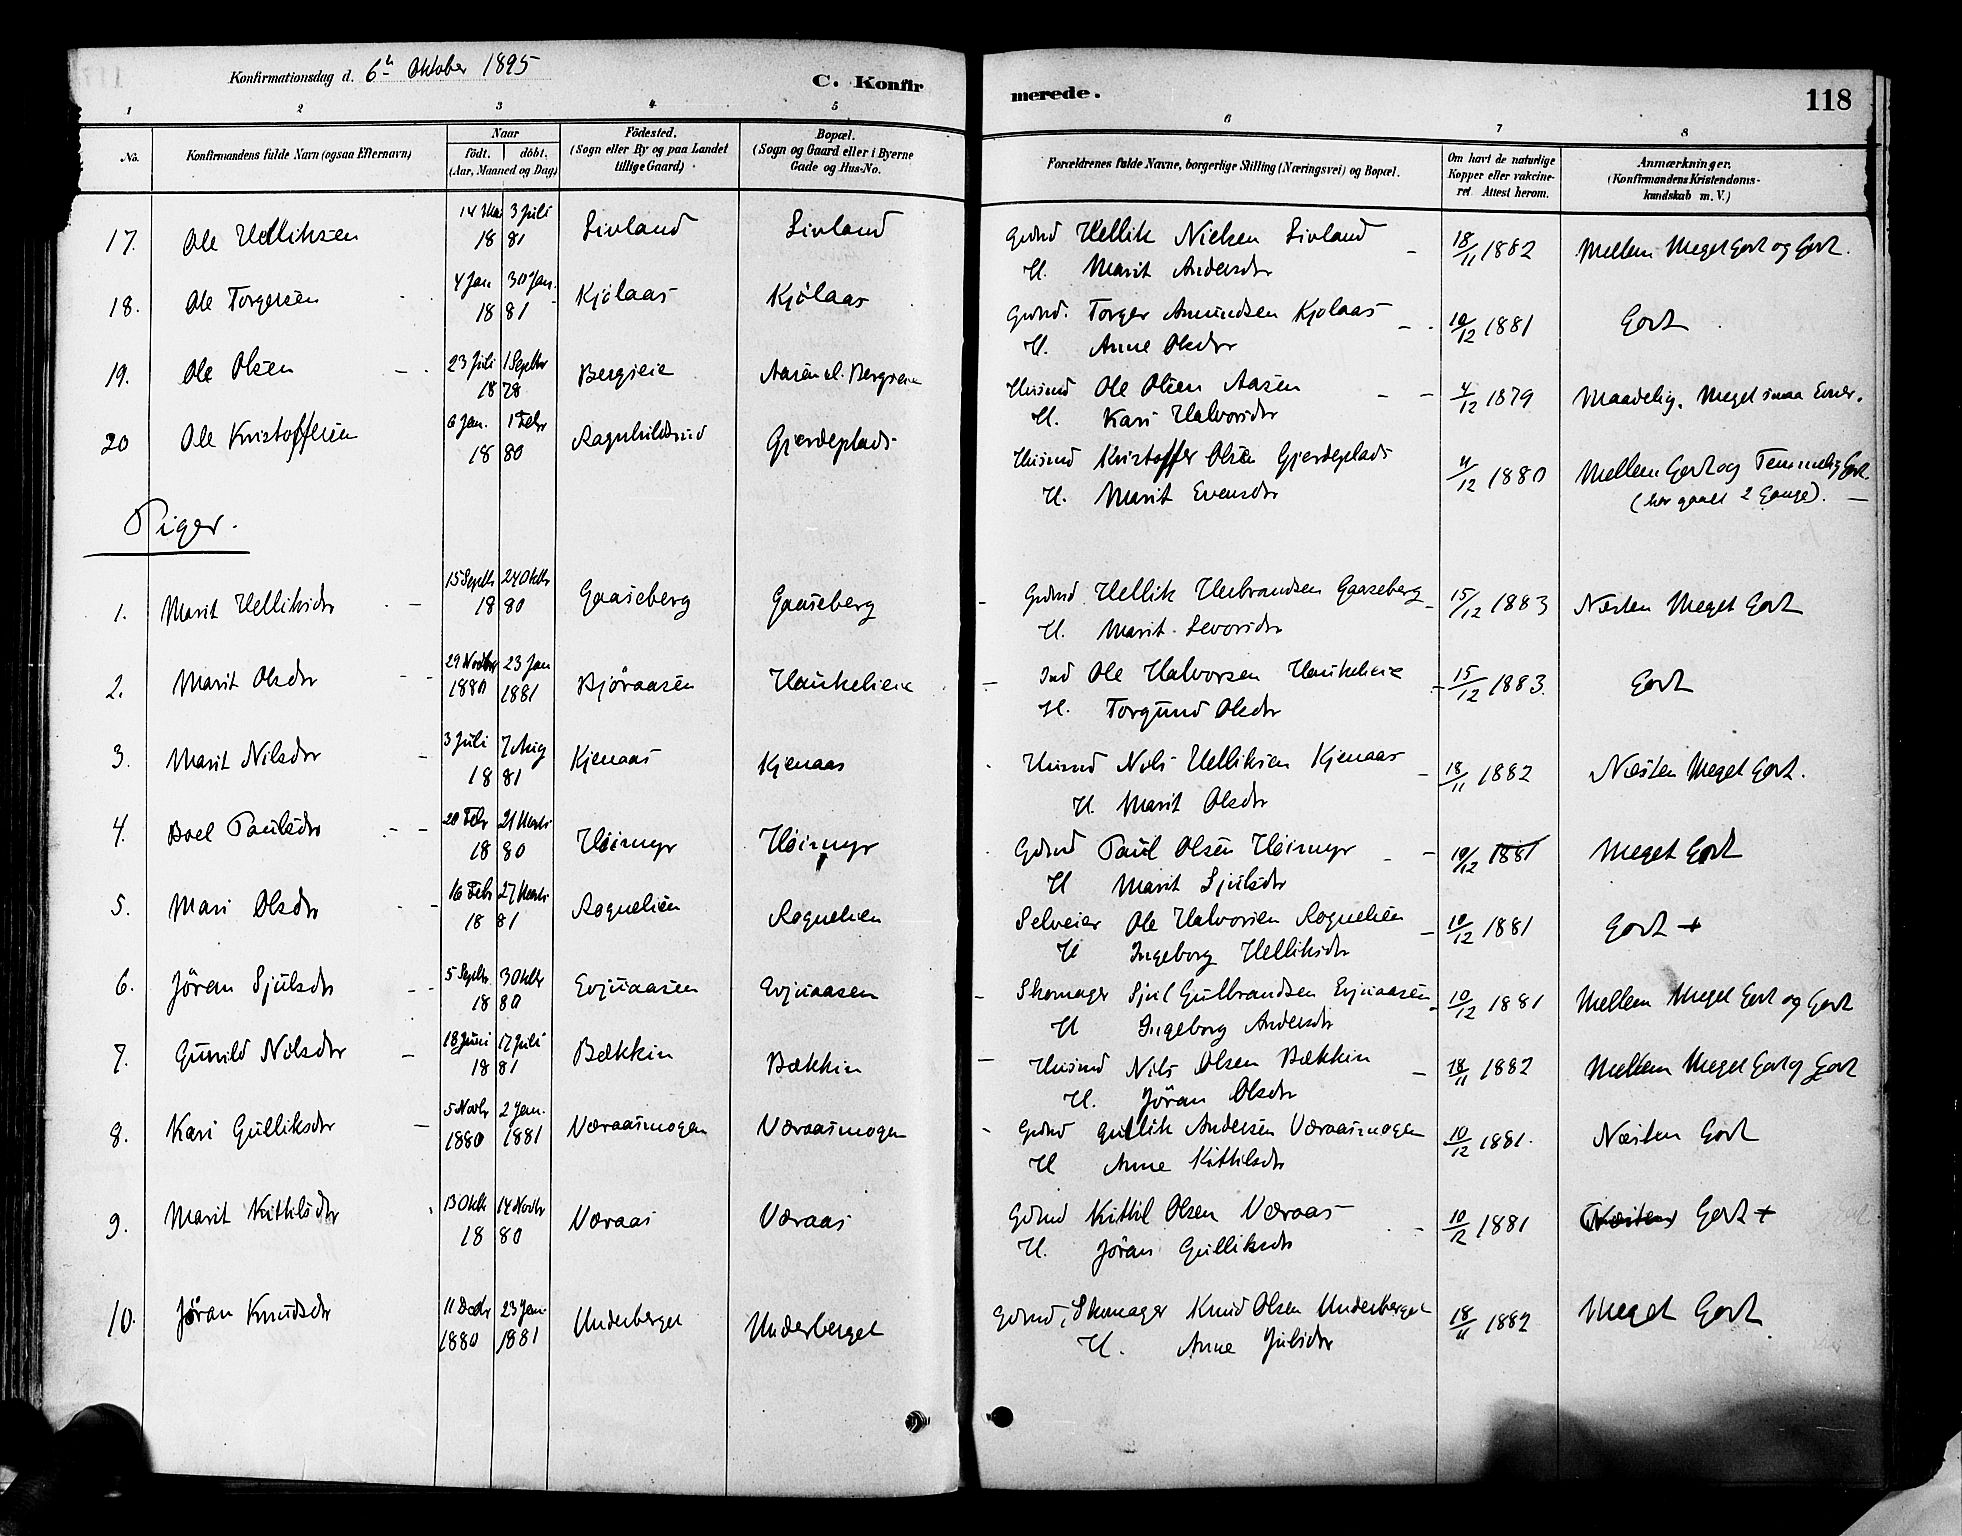 Konfirmationsdag d. 6te Oktober 1895
C. Konfir
merede.
118
1 2 3 4 5 6 7 8
No.
Konfirmandens fulde Navn (ogsaa Efternavn)
Naar
födt. döbt.
(Aar, Maaned og Dag)
Födested.
(Sogn eller By og paa Landet
tillige Gaard)
Bopæl.
(Sogn og Gaard eller i Byerne
Gade og Hus-No.
Forældrenes fulde Navne, borgerlige Stilling (Næringsvei) og Bopæl.
Om havt de naturlige
Kopper eller vakcine-
ret. Attest herom.
Anmærkninger.
(Konfirmandens Kristendoms-
kundskab m. V.)
17. Ole Helliksen 14 Mai 3 Juli 18 81 Livland Livland Grdmd Hellik Nielsen Livland 18/11 1882 Mellem Meget Godt og Godt.
H. Marit Andersdr
18. Ole Torgersen 4 Jan 30 Jan. 18 81 Kjölaas Kjölaas Grdmd. Torger Amundsen Kjolaas 10/12 1881 Godt
H. Anne Olsdr
19. Ole Olsen 23 Juli 1 Septbr 18 78 Bergseie Aasen Bergseie Husmd Ole Olsen Aasen 4/12 1879 Maadelig. Meget smaa Evner.
H. Kari Halvorsdr
20 Ole Kristoffersen 6 Jan. 1 Febr 18 80 Gjerdeplads Husmd Kristoffer Olsen Gjerdeplads 4/12 1880 Mellem Godt og Temmelig Godt.
H. Marit Evensdr (har gaaet 2 Gange).
Piger.
1. Marit Helliksdr 15 Septbr 24 Oktbr 18 80 Gaaseberg Gaaseberg Grdmd. Hellik Herbrandsen Gaaseberg 15/12 1883 Næsten Meget Godt
H. Marit Sevorsdr
2. Marit Olsdr 29 Novbr 23 Jan 1880 1881 Björaasen Haukelieie Ind Ole Halvorsen Haukelieie 15/12 1883. Godt
H. Torgund Olsdr
3. Marit Nilsdr 3 Juli 7 Aug 18 81 Kjenaas Kjenaas Husmd Nils Helliksen Kjenaas 18/11 1882 Næsten Meget Godt.
H. Marit Olsdr
4. Boel Paulsdr 20 Febr 21 Marts 18 80 Höimyr Höimyr Gdmd Paul Olsen Höimyr 10/12 1881 Meget Godt
H Marit Sjulsdr
5. Mari Olsdr 16 Febr 27 Marts 18 81 Rognelien Rognelien Selveier Ole Halvorsen Rognelien 10/12 1881 Godt +
H Ingeborg Helliksdr
6. Jöran Sjulsdr 5 Septbr 3 Oktbr 18 80 Evjuaasen Evjuaasen Skomager Sjul Gulbrandsen Evjuaasen 10/12 1881 Mellem Meget Godt og Godt
H Ingeborg Andersdr
7. Gunild Nilsdr 18 Juni 17 Juli 18 81 Bækkin Bækkin Husmd Nils Olsen Bækkin 18/11 1882 Mellem Meget Godt og Godt
H. Jöran Olsdr
8. Kari Gulliksdr 5 Novbr 2 Jan. 1880 1881 Væraasmogen Væraasmogen Grdmd Gullik Andersen Væraasmogen 10/12 1881. Næsten Godt
H Anne Kittilsdr
9. Marit Kittilsdr 13 Oktbr 14 Novbr 18 80 Væraas Væraas Gdmd Kittil Olsen Væraas 10/12 1881 Næsten Godt +
H. Jöran Gulliksdr
10. Jöran Knudsdr 11 Decbr 23 Jan 1880 1881 Underberget Underberget Gdmd, Skomager Knud Olsen Underberget 18/11 1882 Meget Godt
H. Anne Julsdr